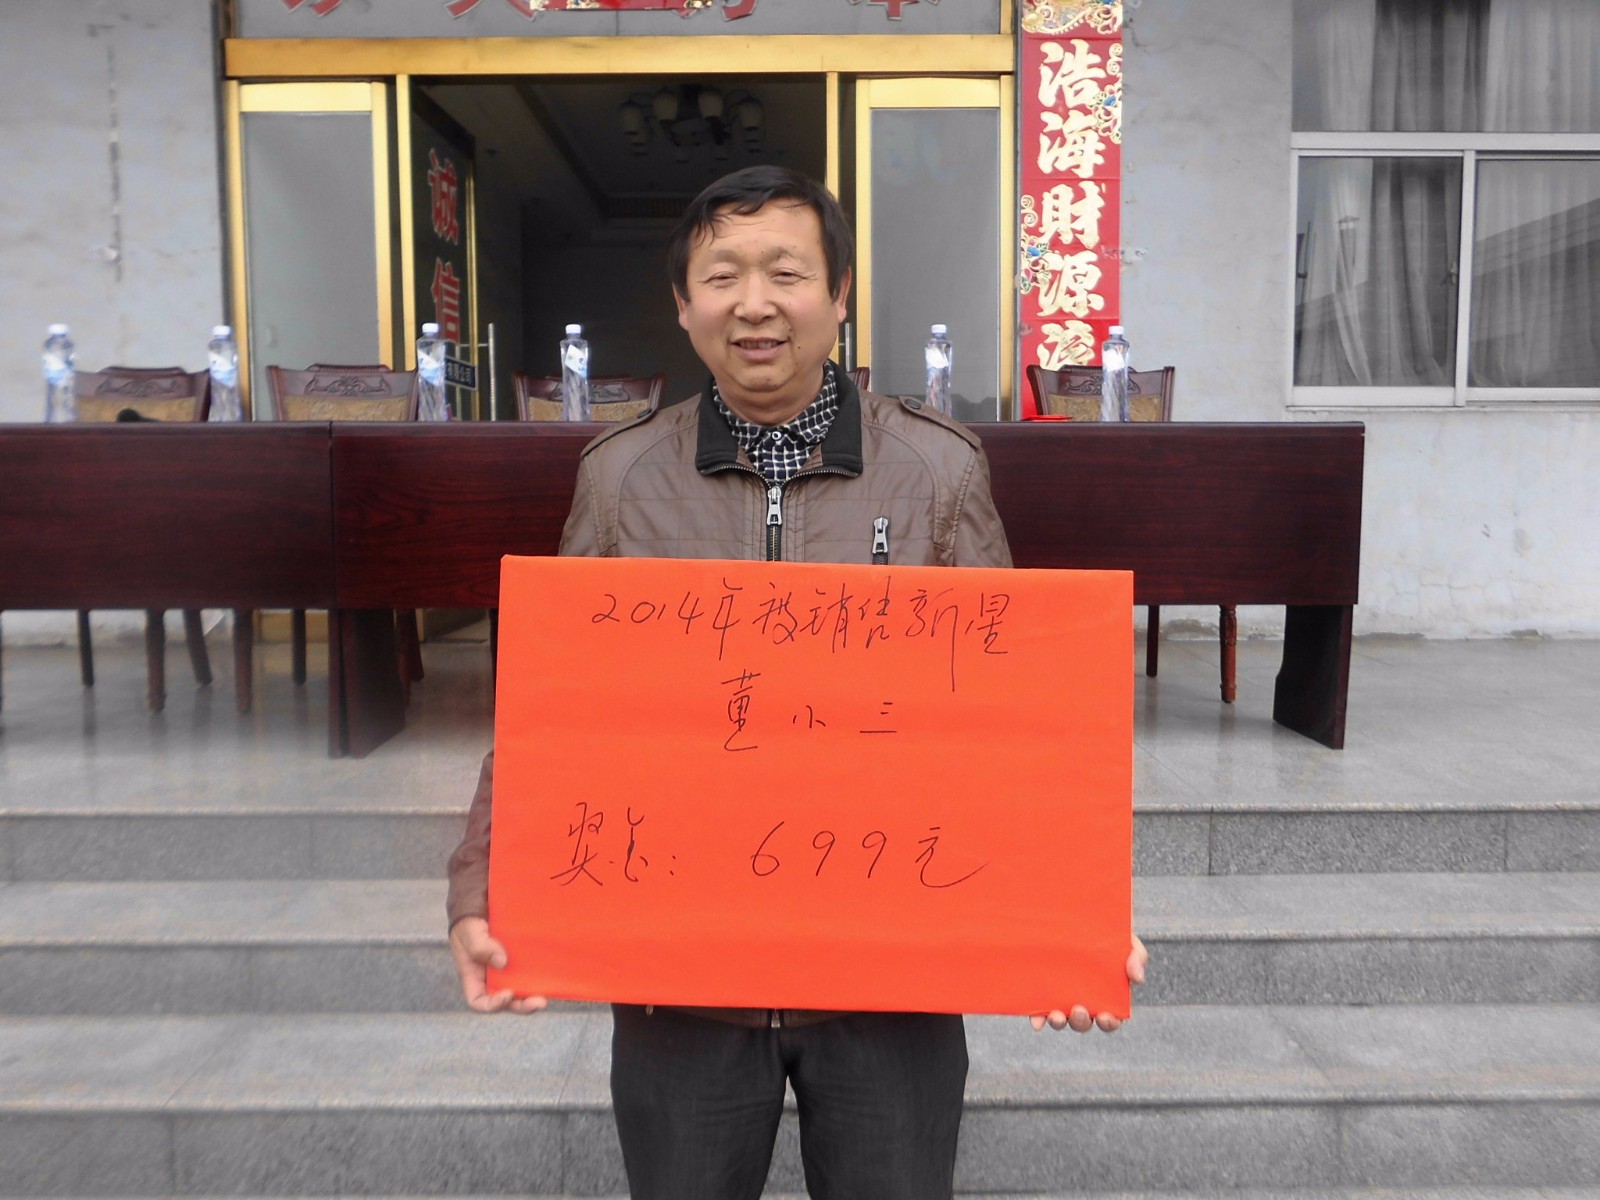 浩海财源
诚信
2014年被销售新星
董小三
奖金: 699元